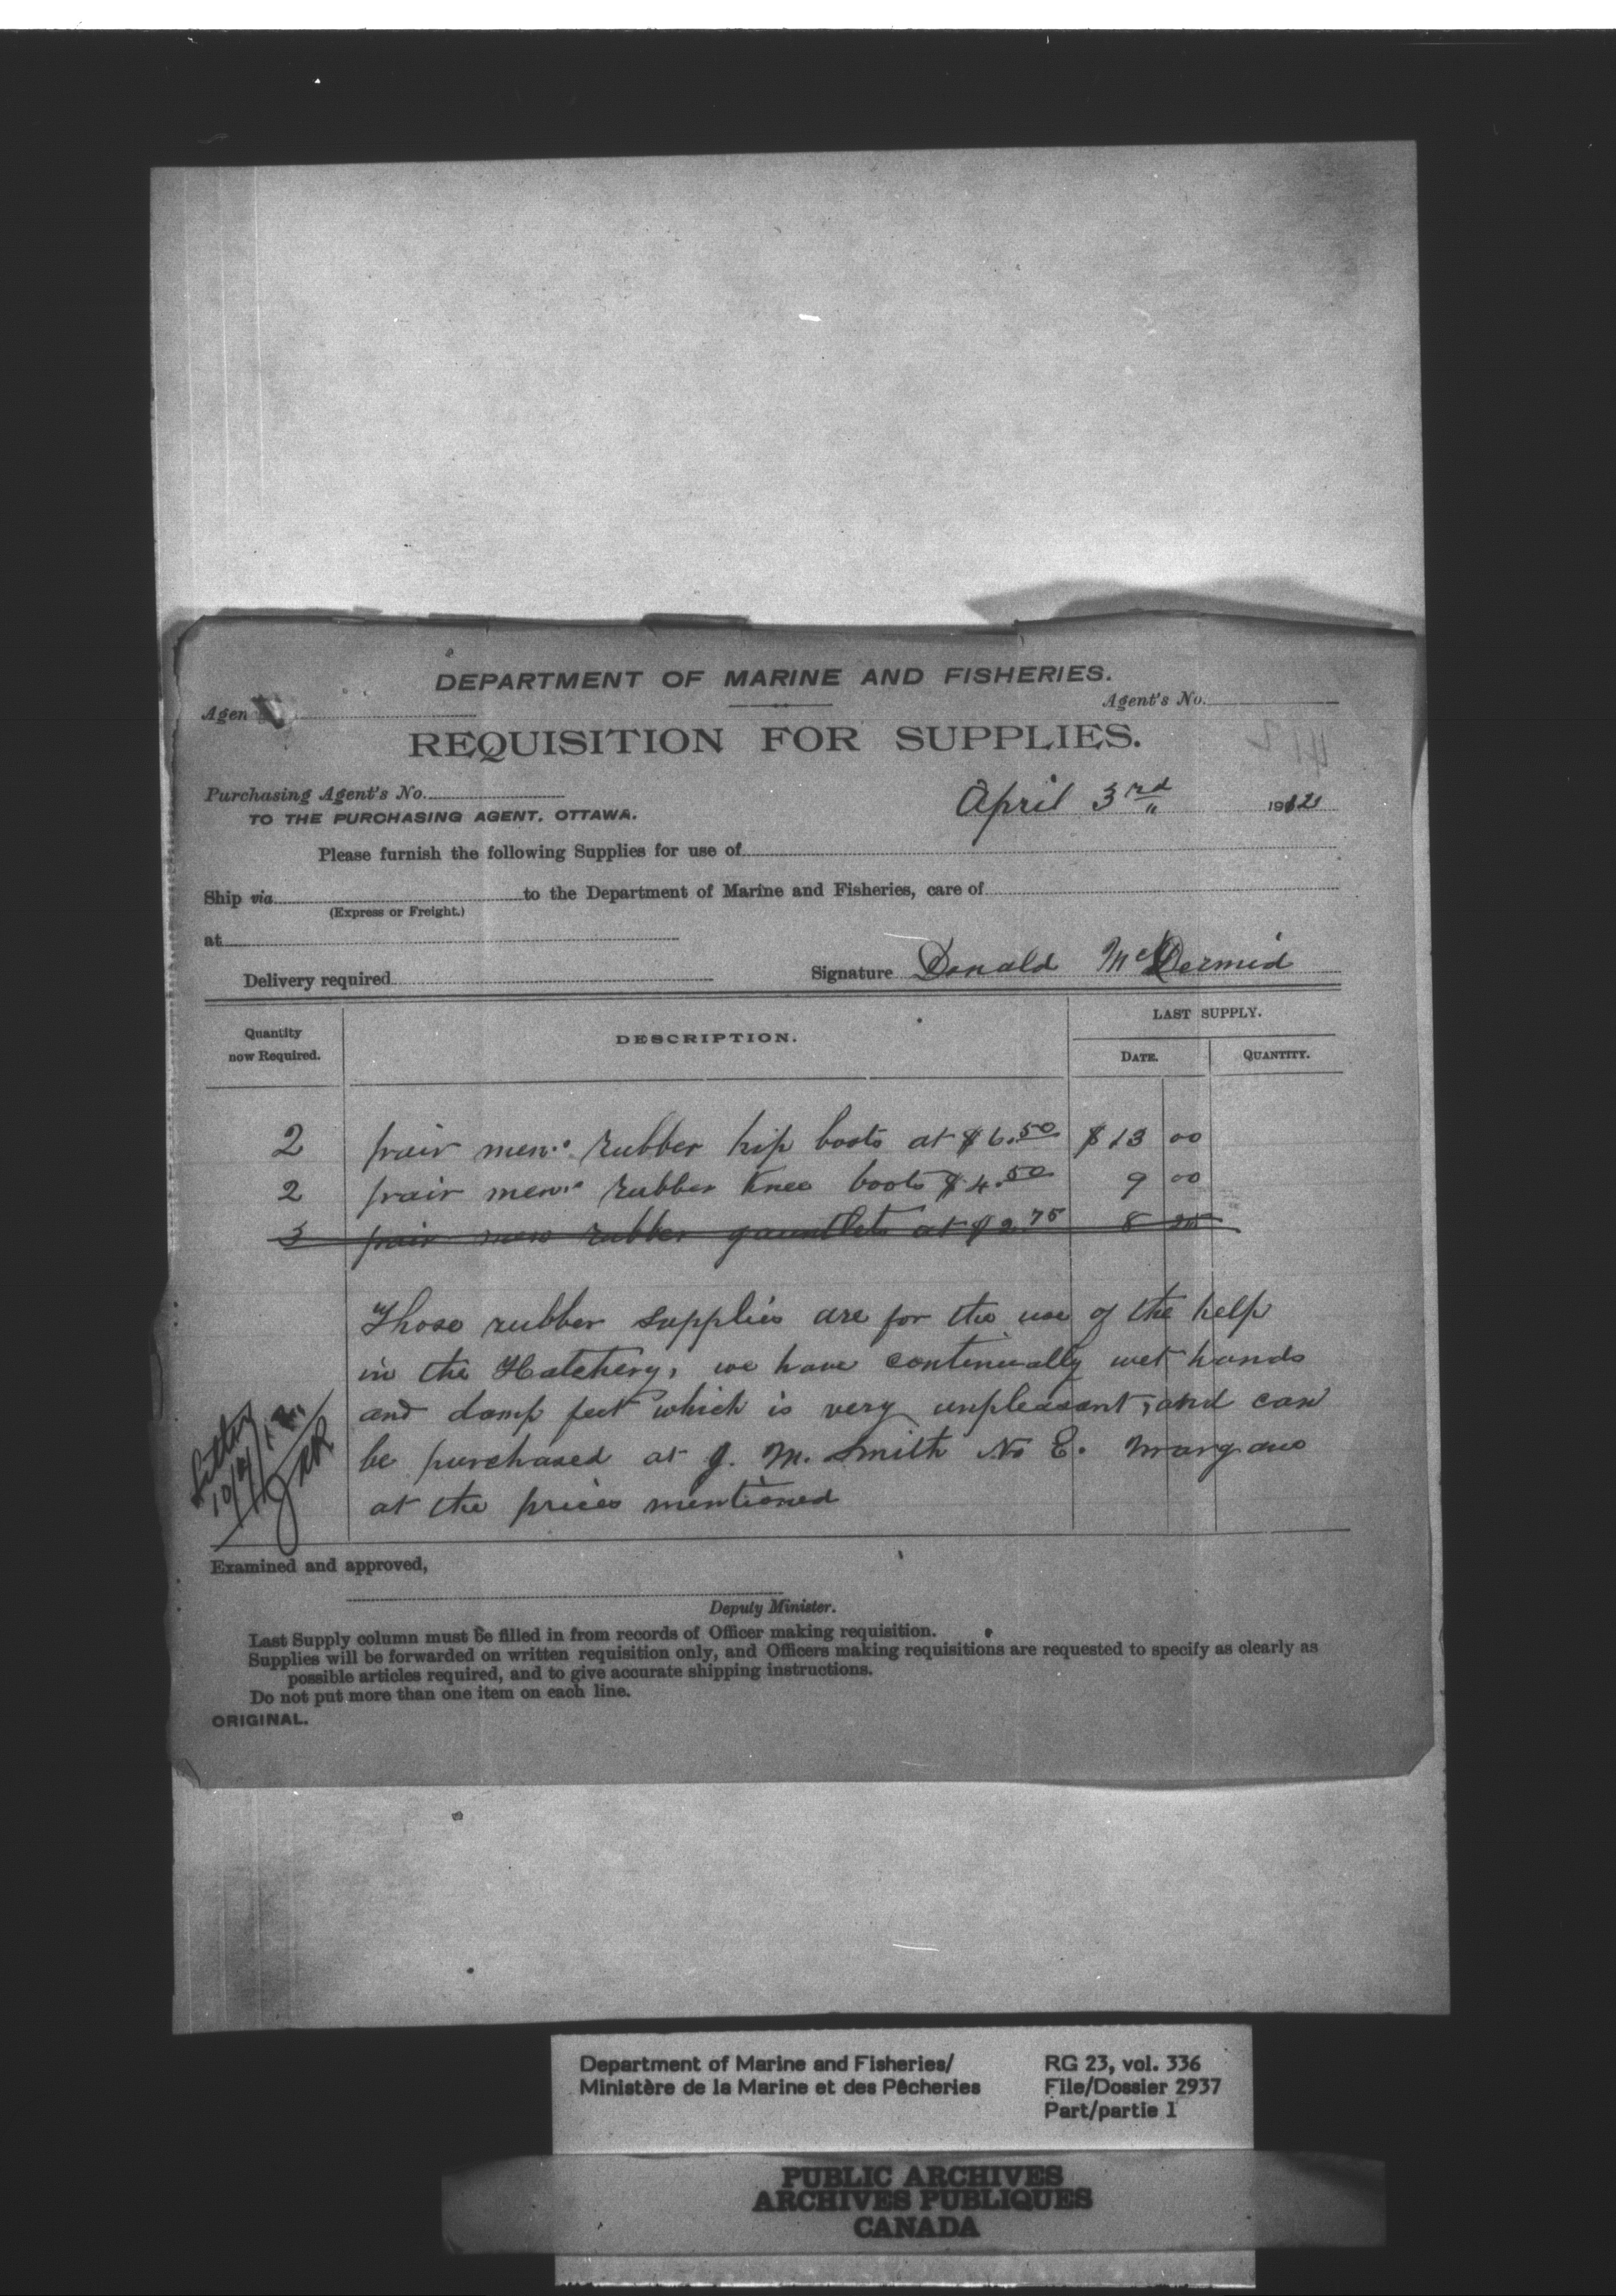 DEPARTMENT OF MARINE AND FISHERIES.
Agen
Agent's No.
REQUISITION FOR SUPPLIES.
Purchasing Agent's No.
April 3rd 1912
TO THE PURCHASING AGENT, OTTAWA.
Please furnish the following Supplies for use of
Ship via to the Department of Marine and Fisheries, care of
(Express or Freight.)
at
Delivery required
Signature Donald McDermid
Quantity now Required.
DESCRIPTION.
LAST SUPPLY.
DATE.
QUANTITY.
2 pair mens rubber hip boots at $6.50 $13 00
2 pair mens rubber Knee boots $4.50 9 00
3 pair mens rubber gauntlets at $2.75 8 25
Those rubber supplies are for the use of the help
in the Hatchery, we have continually wet hands
and damp feet which is very unpleasant, and can
be purchased at J. M. Smith N. E. Margaree
at the prices mentioned
10/4/12
Examined and approved,
Deputy Minister.
Last Supply column must be filled in from records of Officer making requisition.
Supplies will be forwarded on written requisition only, and Officers making requisitions are requested to specify as clearly as
possible articles required, and to give accurate shipping instructions.
Do not put more than one item on each line.
ORIGINAL.
Department of Marine and Fisheries/
Ministère de la Marine et des Pêcheries
RG 23, vol. 336
File/Dossier 2937
Part/partie 1
PUBLIC ARCHIVES
ARCHIVES PUBLIQUES
CANADA